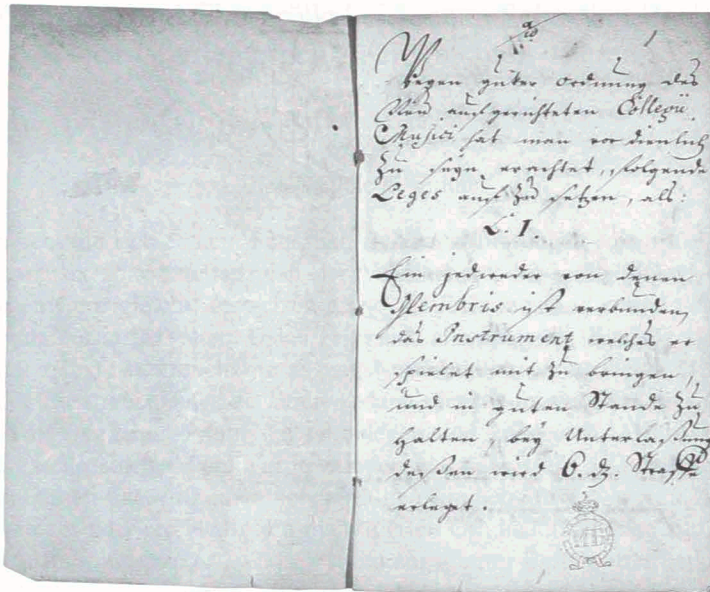 1
Wegen guter Ordnung des
Neu auffgerichteten Collegii
Musici hat man vor dienlich
zu seyn erachtet, folgende
Leges auff zu setzen, als:
L. 1.
Ein jedweder von denen
Membris ist verbunden
das Instrument welches er
spielet mit zu bringen,
und in guten Stande zu
halten, bey Unterlaßung
deßen wird 6. d. Straffe
erleget.